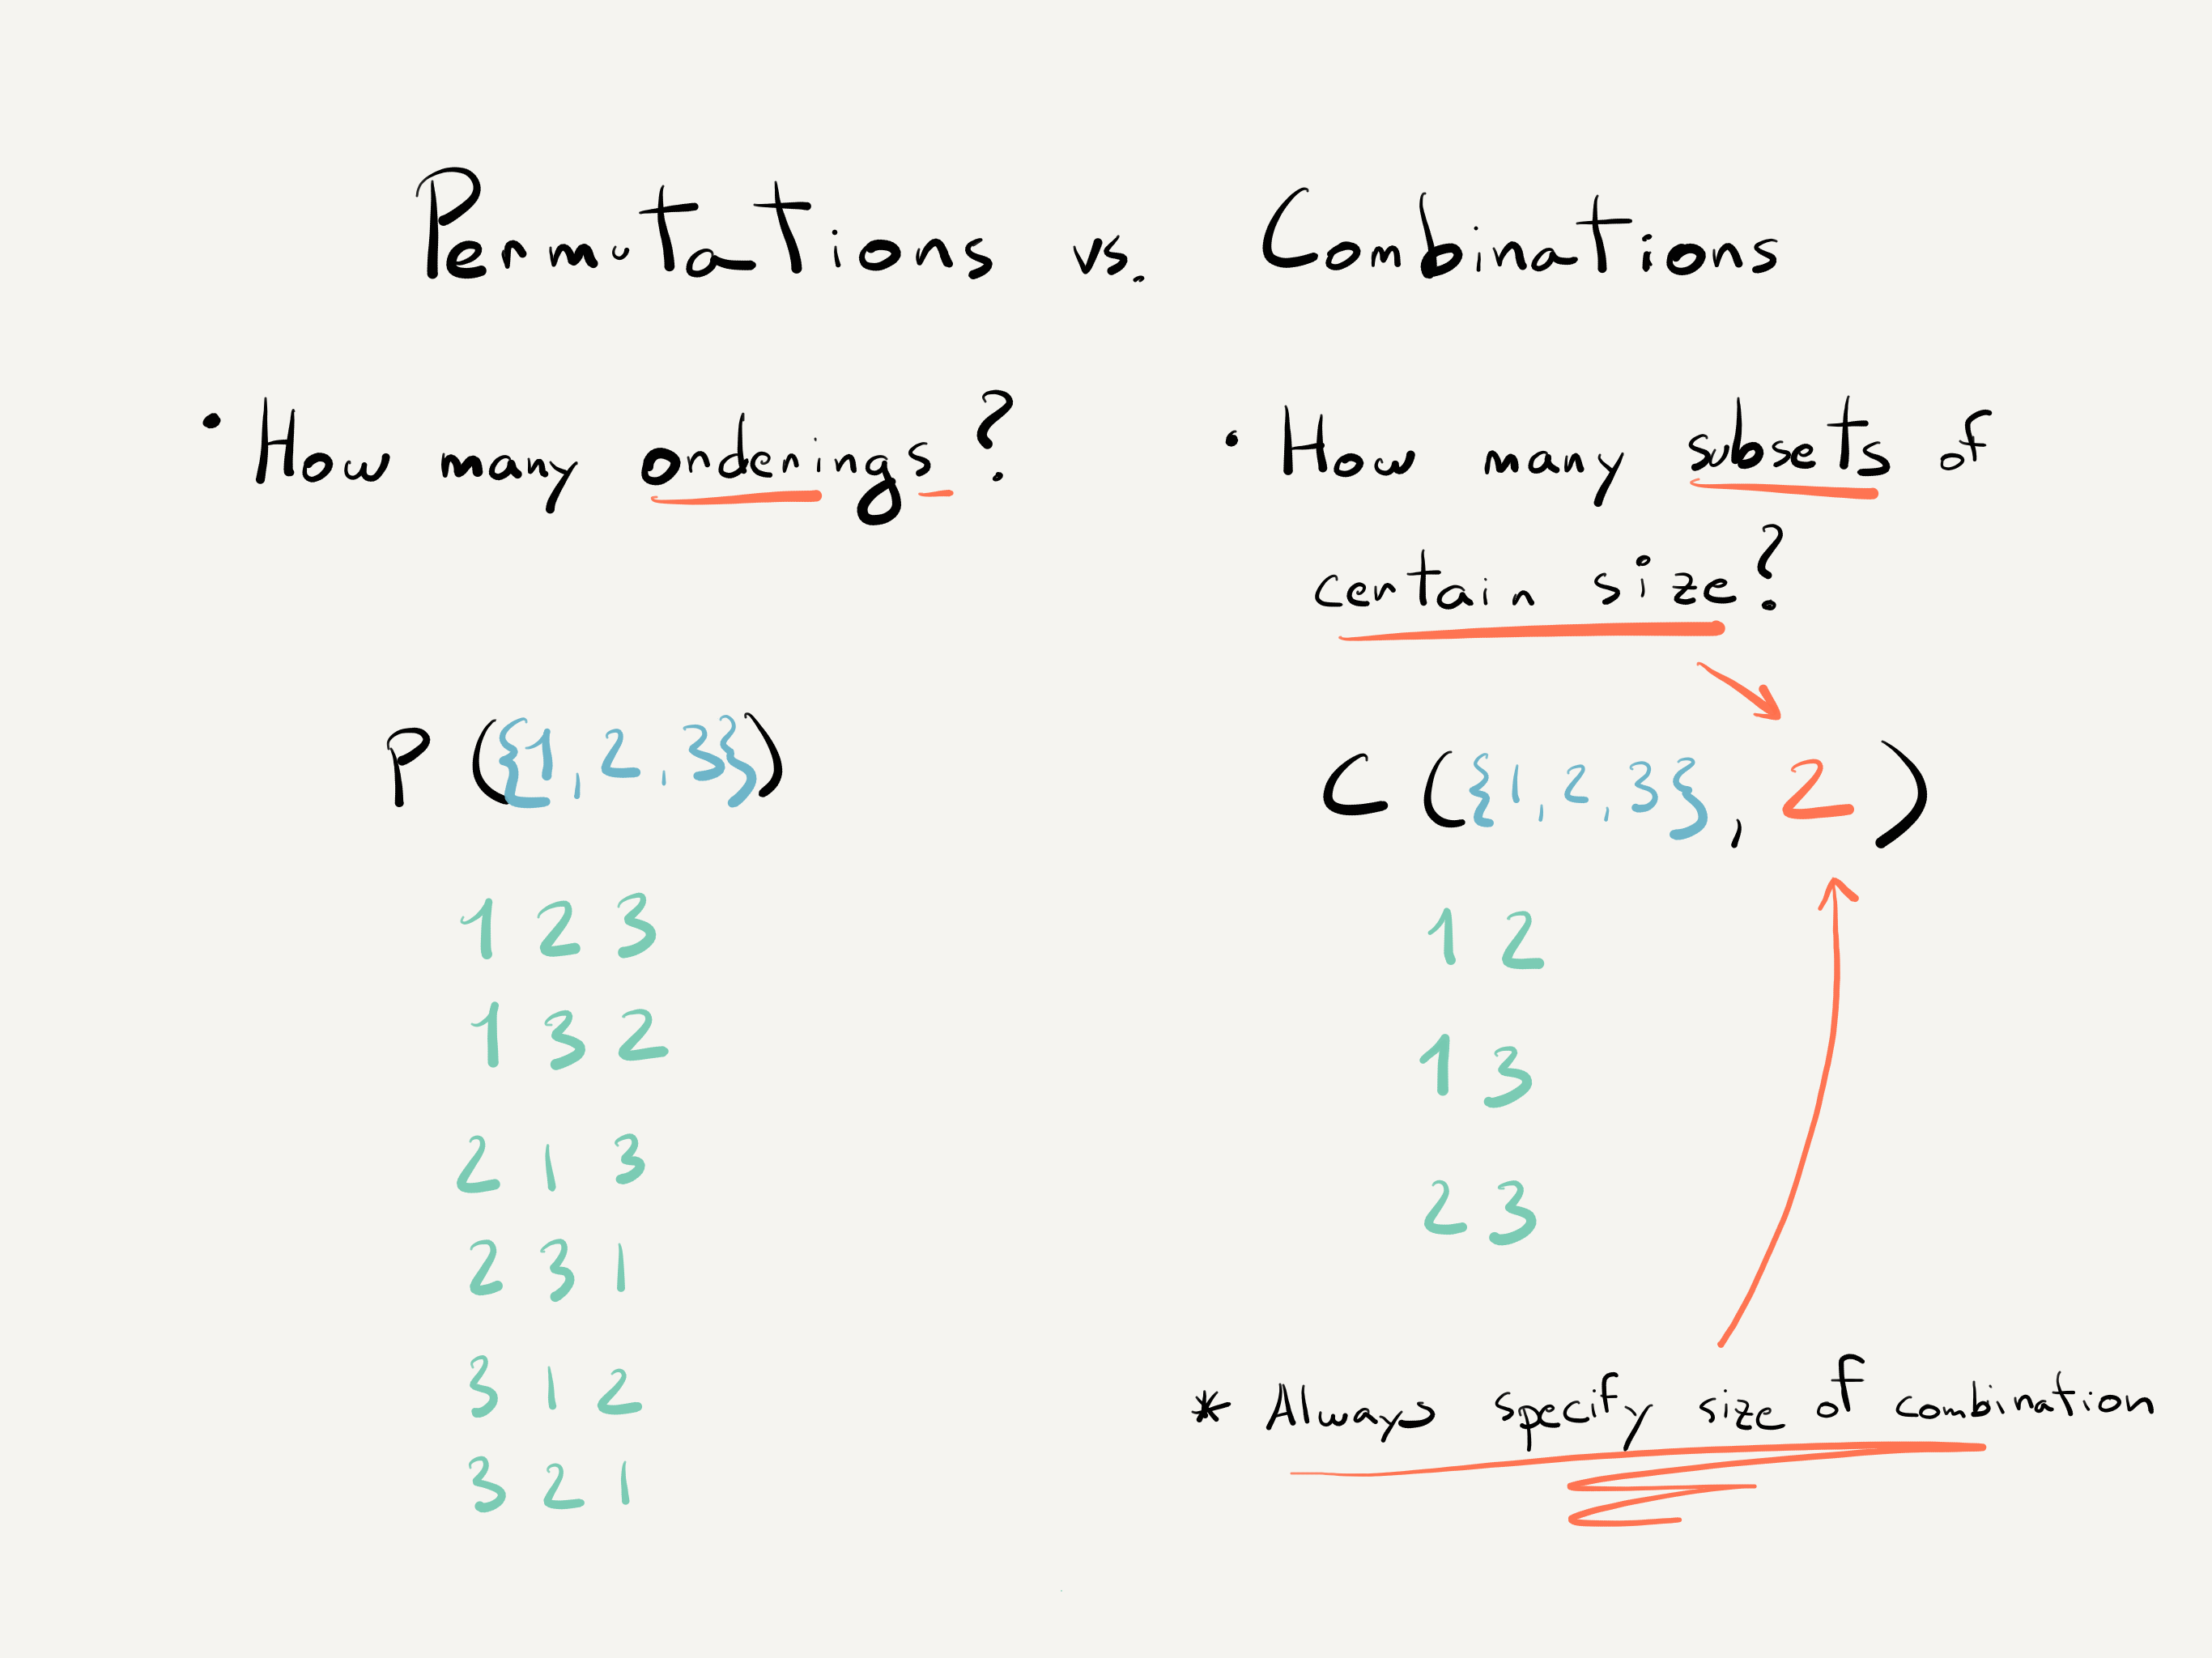 Permutations vs. Combinations
• How many orderings?
• How many subsets of
certain size?
P ({1,2,3})
1 2 3
1 3 2
2 1 3
2 3 1
3 1 2
3 2 1
C ({1,2,3}, 2)
1 2
1 3
2 3
* Always specify size of combination